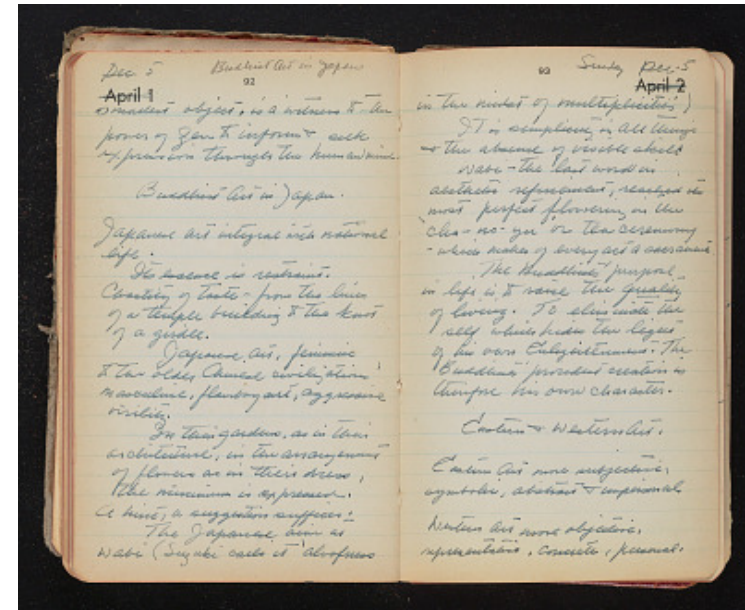 Dec 5 Buddhist Art in Japan
92
April 1
object, is a witness to the
power of Zen to inform & seek
expression through the human mind.
Buddhist Art in Japan.
Japanese art integral with national
life.
Its essence is restraint.
Chastity of taste - from the lines
of a temple building to the knot
of a girdle.
Japanese art, feminine
to the older Chinese civilization,
masculine, flamboyant, aggressive
virility.
In their gardens, as in their
architecture, in the arrangement
of flowers as in their dress,
the minimum is expressed.
A hint, a suggestion suffices!
The Japanese aim at
wabi (Suzuki calls it "aloofness
93 Sunday Dec-5
April 2
in the midst of multiplicities")
It is simplicity in all things
& the absence of visible skill
Wabi - the last word in
aesthetic refinement, reached its
most perfect flowering in the
cha-no-yu or tea ceremony
- which makes of every act a sacrament.
The Buddhist's purpose
in life is to raise the quality
of living. To eliminate the
self which hides the light
of his own Enlightenment. The
Buddhist's proudest creation is
therefore his own character.
Eastern & Western Art.
Eastern Art more subjective,
symbolic, abstract & impersonal
Western Art more objective,
representative, concrete, personal.